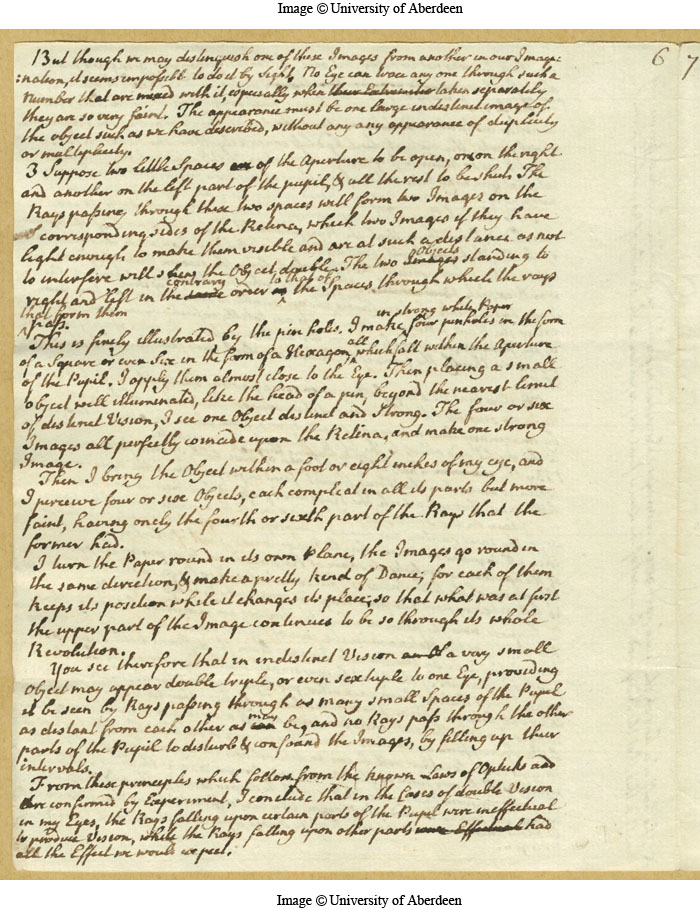 Image © University of Aberdeen
6 7
But though we may distinguish one of these Images from another in our Imagi:
:nation, it seems impossible to do it by sight. No Eye can trace any one through such a
Number that are mixed with it, especially when their taken separately
they are so very faint. The appearance must be one large indistinct image of
the object such as we have described, without any any appearance of duplicity
or multiplicity.
3 Suppose two little Spaces of the Aperture to be open, one on the right
and another on the left part of the pupil, & all the rest to be shut. The
Rays passing through these two spaces will form two Images on the
corresponding sides of the Retina, which two Images if they have
light enough to make them visible and are at such a distance as not
to interfere will shew the Object double. The two Images Objects standing to
right and left in the same contrary order to that of the Spaces through which the rays
that form them
pass.
in strong white Paper
This is finely illustrated by the pin holes. I make four pinholes in the form
of a Square or even Six in the form of a Hexagon, all which fall within the Aperture
of the Pupil. I apply them almost close to the Eye. Then placing a small
object well illuminated, like the head of a pin, beyond the nearest limit
of distinct Vision, I see one Object distinct and strong. The four or six
Images all perfectly coincide upon the Retina, and make one strong
Image.
Then I bring the Object within a foot or eight inches of my eye, and
I perceive four or six Objects, each compleat in all its parts but more
faint, having onely the fourth or sixth part of the Rays that the
former had.
I turn the Paper round in its own Plane, the Images go round in
the same direction, & make a pretty kind of Dance; for each of them
keeps its position while it changes its place; so that what was at first
the upper part of the Image continues to be so through its whole
Revolution.
You see therefore that in indistinct Vision a very small
Object may appear double triple, or even sextuple to one Eye, providing
it be seen by Rays passing through as many small Spaces of the Pupil
as distant from each other as may be, and no Rays pass through the other
parts of the Pupil to disturb & confound the Images, by filling up their
intervals.
From these principles which follow from the known Laws of Opticks and
are confirmed by Experiment, I conclude that in the Cases of double Vision
in my Eyes, the Rays falling upon certain parts of the Pupil were ineffectual
to produce Vision, while the Rays falling upon other parts were Effectual had
all the Effect we would expect.
Image © University of Aberdeen